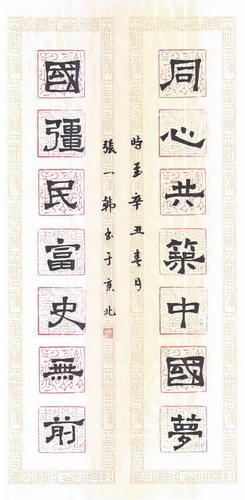 同心共築中國夢
國彊民富史無前
時至辛丑春月
張一韓書于京北